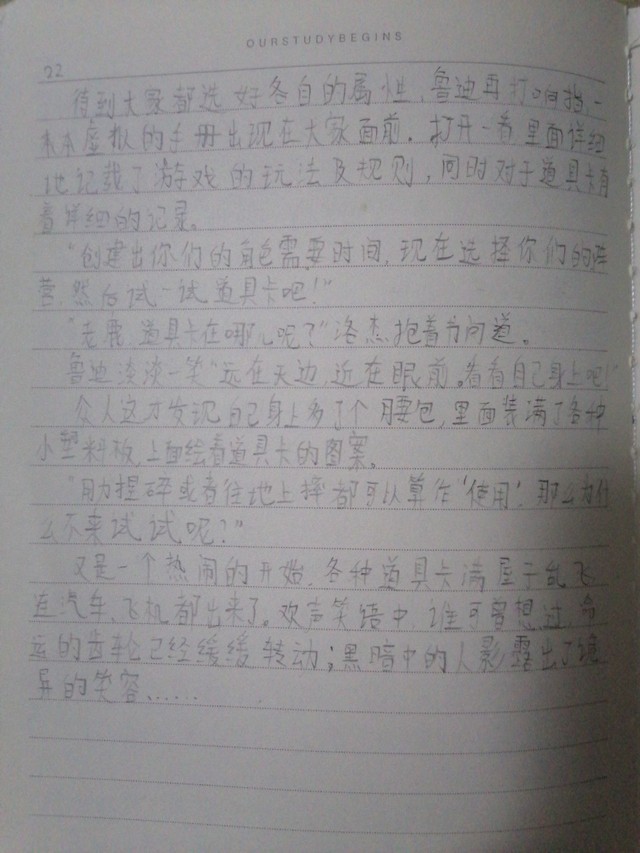 OURSTUDYBEGINS
22
待到大家都选好各自的属性,鲁迪再打响指,一
本本虚拟的手册出现在大家面前。打开一看里面详细
地记载了游戏的玩法及规则,同时对于道具卡有
着详细的记录。
“创建出你们的角色需要时间,现在选择你们的阵
营,然后试一试道具卡吧!”
“老鹿,道具卡在哪儿呢?”洛杰抱着书问道。
鲁迪淡淡一笑“远在天边,近在眼前。看看自己身上吧!”
众人这才发现自己身上多了个腰包,里面装满了各种
小塑料板,上面绘着道具卡的图案。
“用力捏碎或者往地上摔都可以算作‘使用’.那么为什
么不来试试呢?”
又是一个热闹的开始,各种道具卡满屋子乱飞
连汽车、飞机都出来了。欢声笑语中,谁可曾想过,命
运的齿轮已经缓缓转动;黑暗中的人影露出了诡
异的笑容……